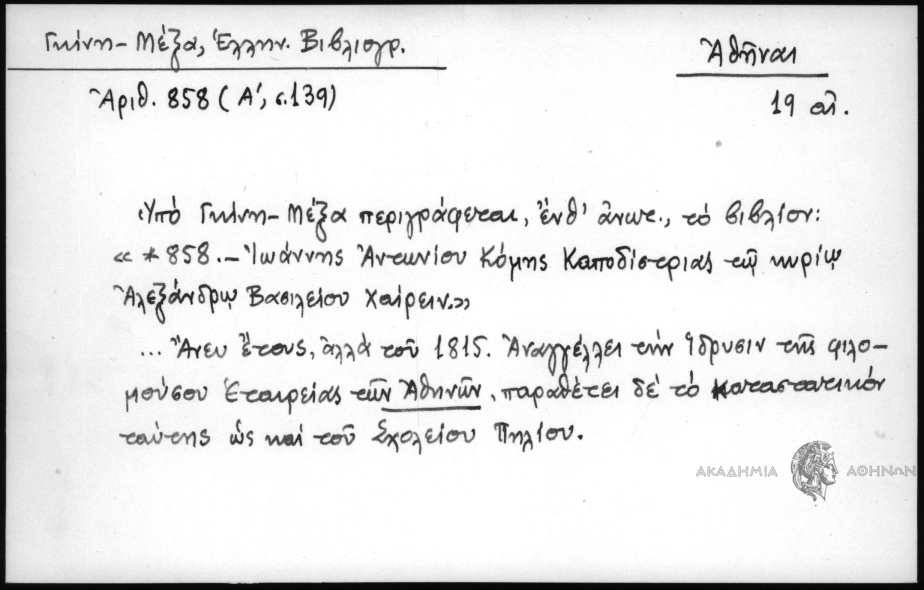 Γκίνη-Μέξα, Ἑλλην. Βιβλιογρ.
Ἀθῆναι
Ἀριθ. 858 (Α', σ. 139)
19 αἰ.
Ὑπό Γκίνη-Μέξα περιγράφεται, ἔνθ' ἀνωτ., τό βιβλίον:
« * 858.- Ἰωάννης Ἀντωνίου Κόμης Καποδίστριας τῷ κυρίῳ
Ἀλεξάνδρῳ Βασιλείου χαίρειν.»
... Ἄνευ ἔτους, ἀλλά τοῦ 1815. Ἀναγγέλλει τήν ἵδρυσιν τῆς φιλο-
μούσου Ἑταιρείας τῶν Ἀθηνῶν, παραθέτει δέ τό καταστατικόν
ταύτης ὡς καί τοῦ Σχολείου Πηλίου.
ΑΚΑΔΗΜΙΑ ΑΘΗΝΩΝ